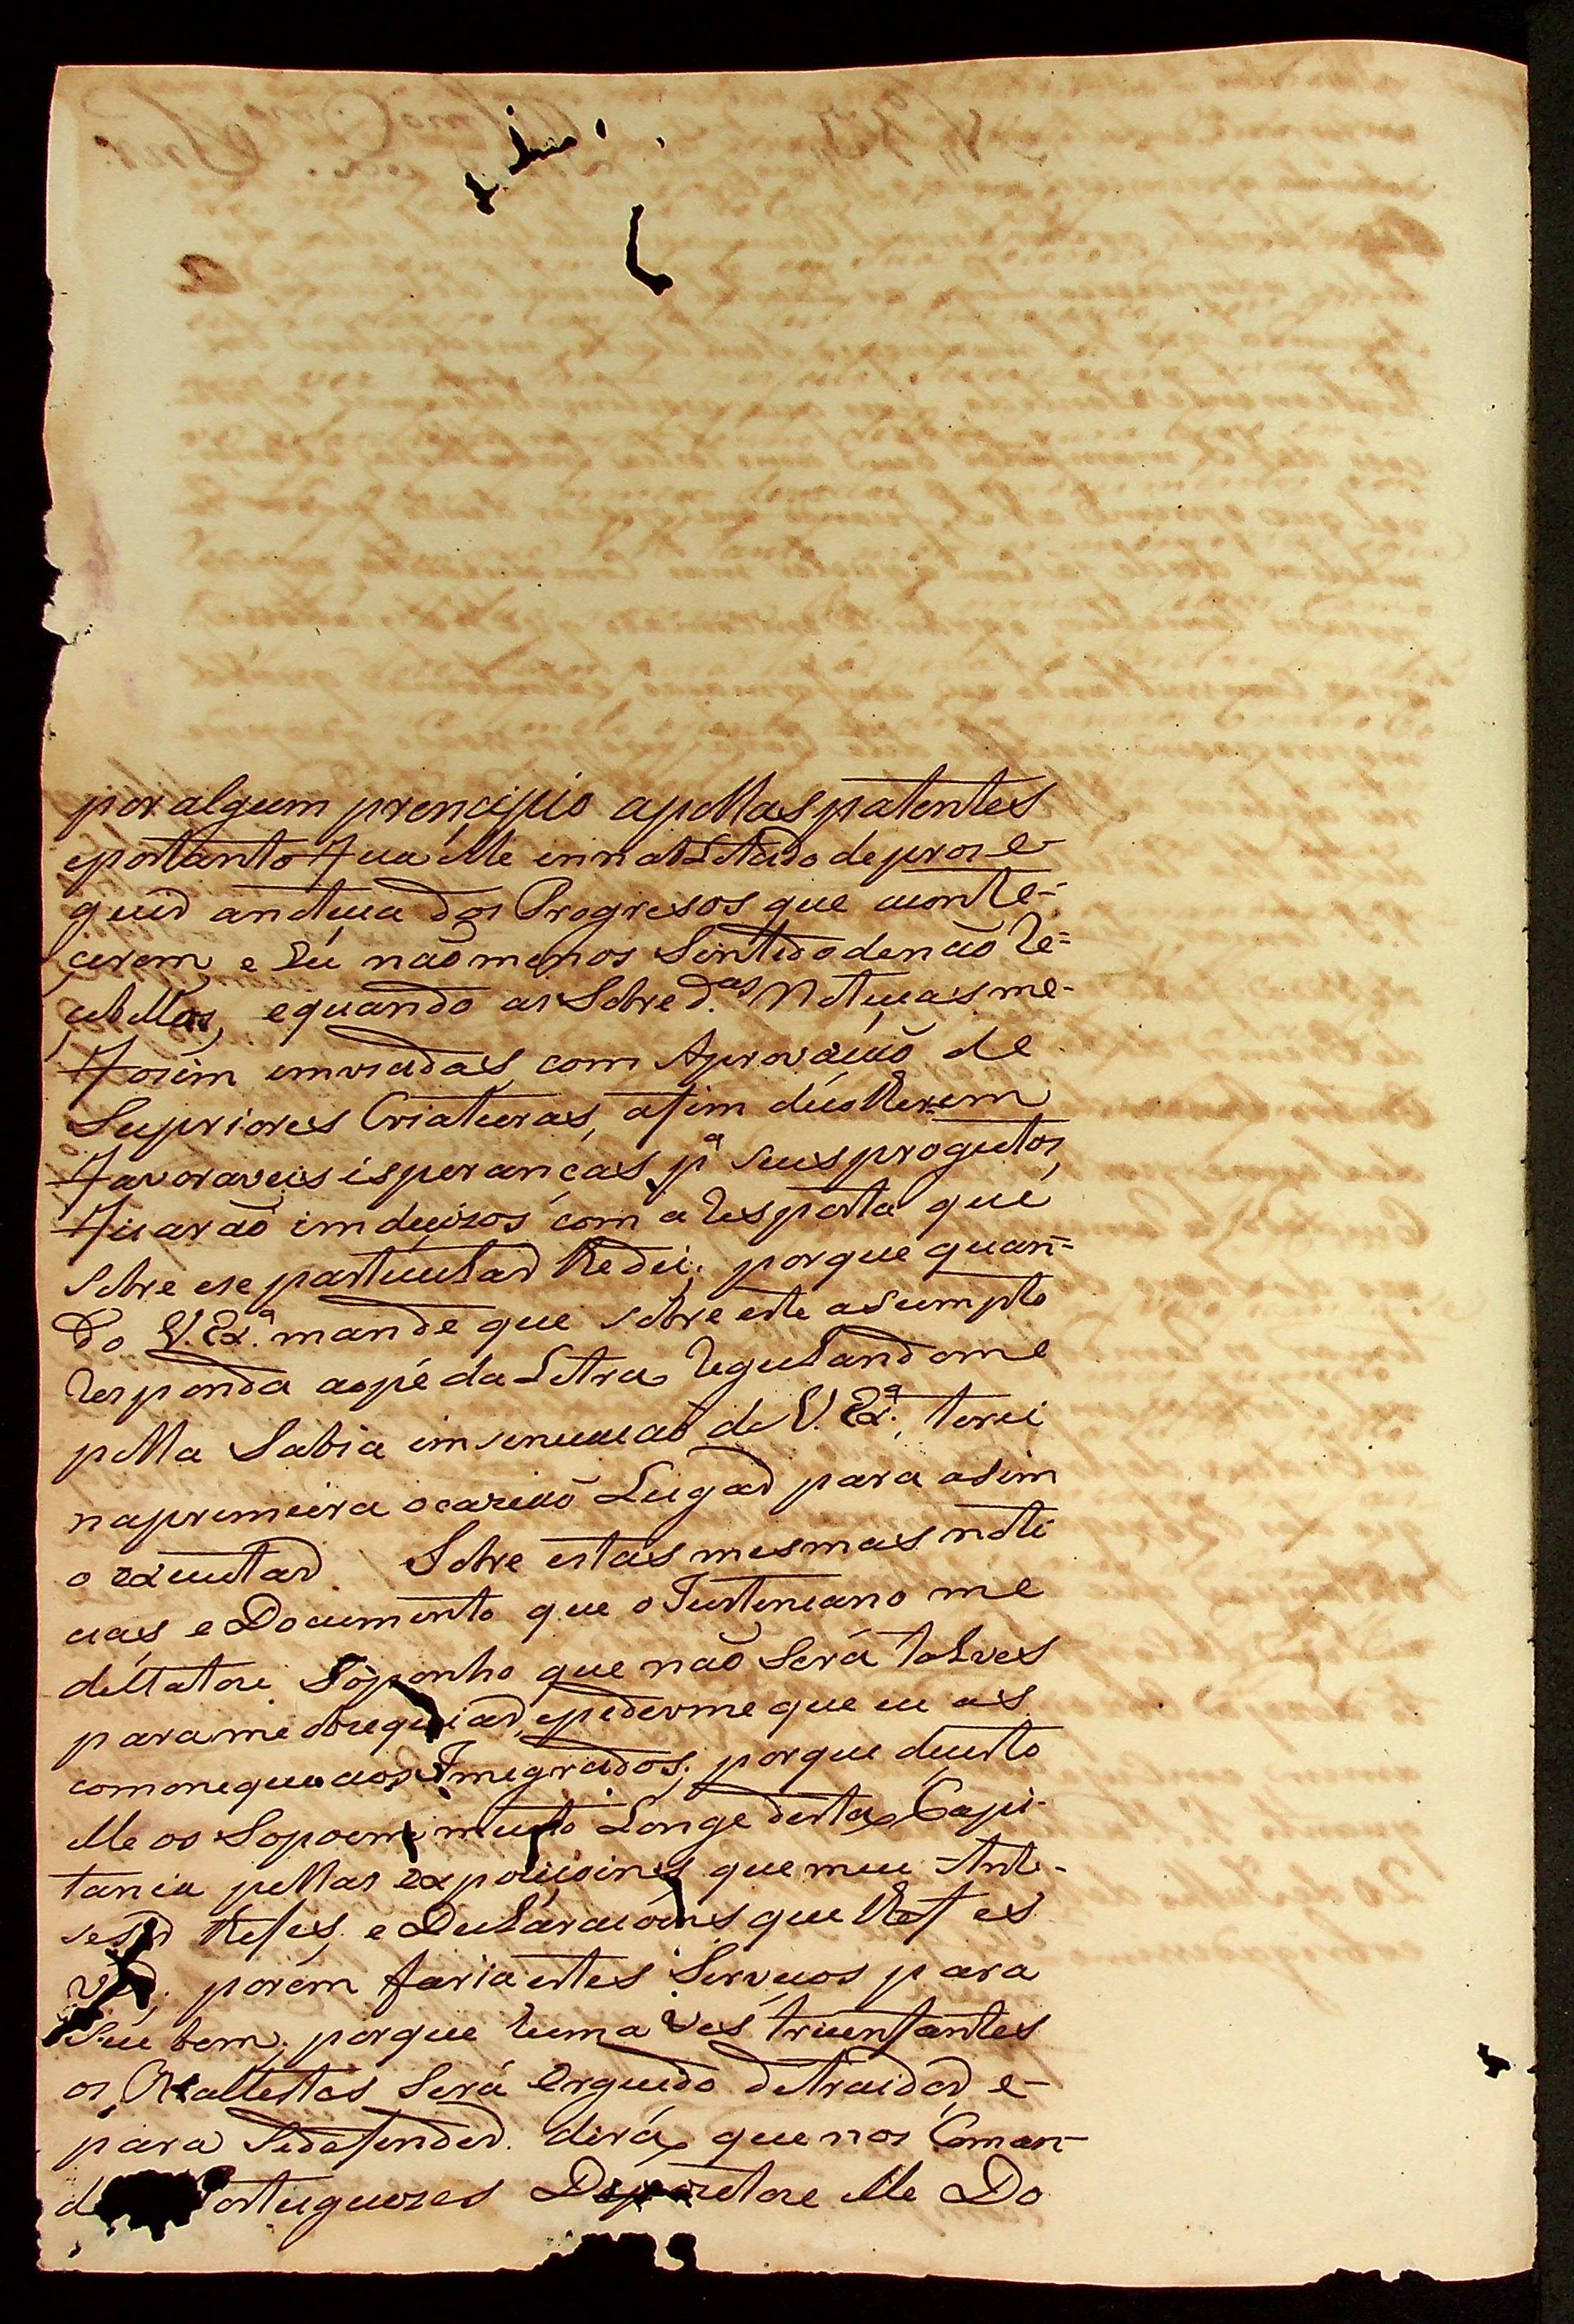 por algum prençipio apellas patentes
eportanto fica elle innabelitado de prose
guid a noticia dos Progresos que aconte-
çerem, e Eu não menos Sentido denão re-
çebellas, equando as Sobred.as Notiçias me-
forem inviadas com Aprovação de
Supriores Criaturas, afim de colherem
favoraveis isperanças p.a seus progetos,
ficarão indeçizos com a resposta que
sobre ese particular lhe dei; porque quan-
do V. Ex.a mande que sobre este asumpto
responda aopé da Letra, regulandome
pella Sabia insenuacaõ de V. Ex.a, terei
naprimeira ocazião Lugar para asim
o executar. Sobre estas mesmas noti
cias e Documento que o Justeniano me
Soponho que não Será talves
para me obsequiar, epedirme que eu as
aos Imigrados; porque
elle os Sopoem muito Longe desta Capi-
tania pellas expoziçoines que meu Ante-
sesor lhe fes, e Declaraçoins que lhe fes
porem faria estes Serviços para
Seu bem; porque huma ves triunfantes
os Será erguido detraidor, e
para Sedefender. dirá, que nos Coman-
d ortuguezes elle Do